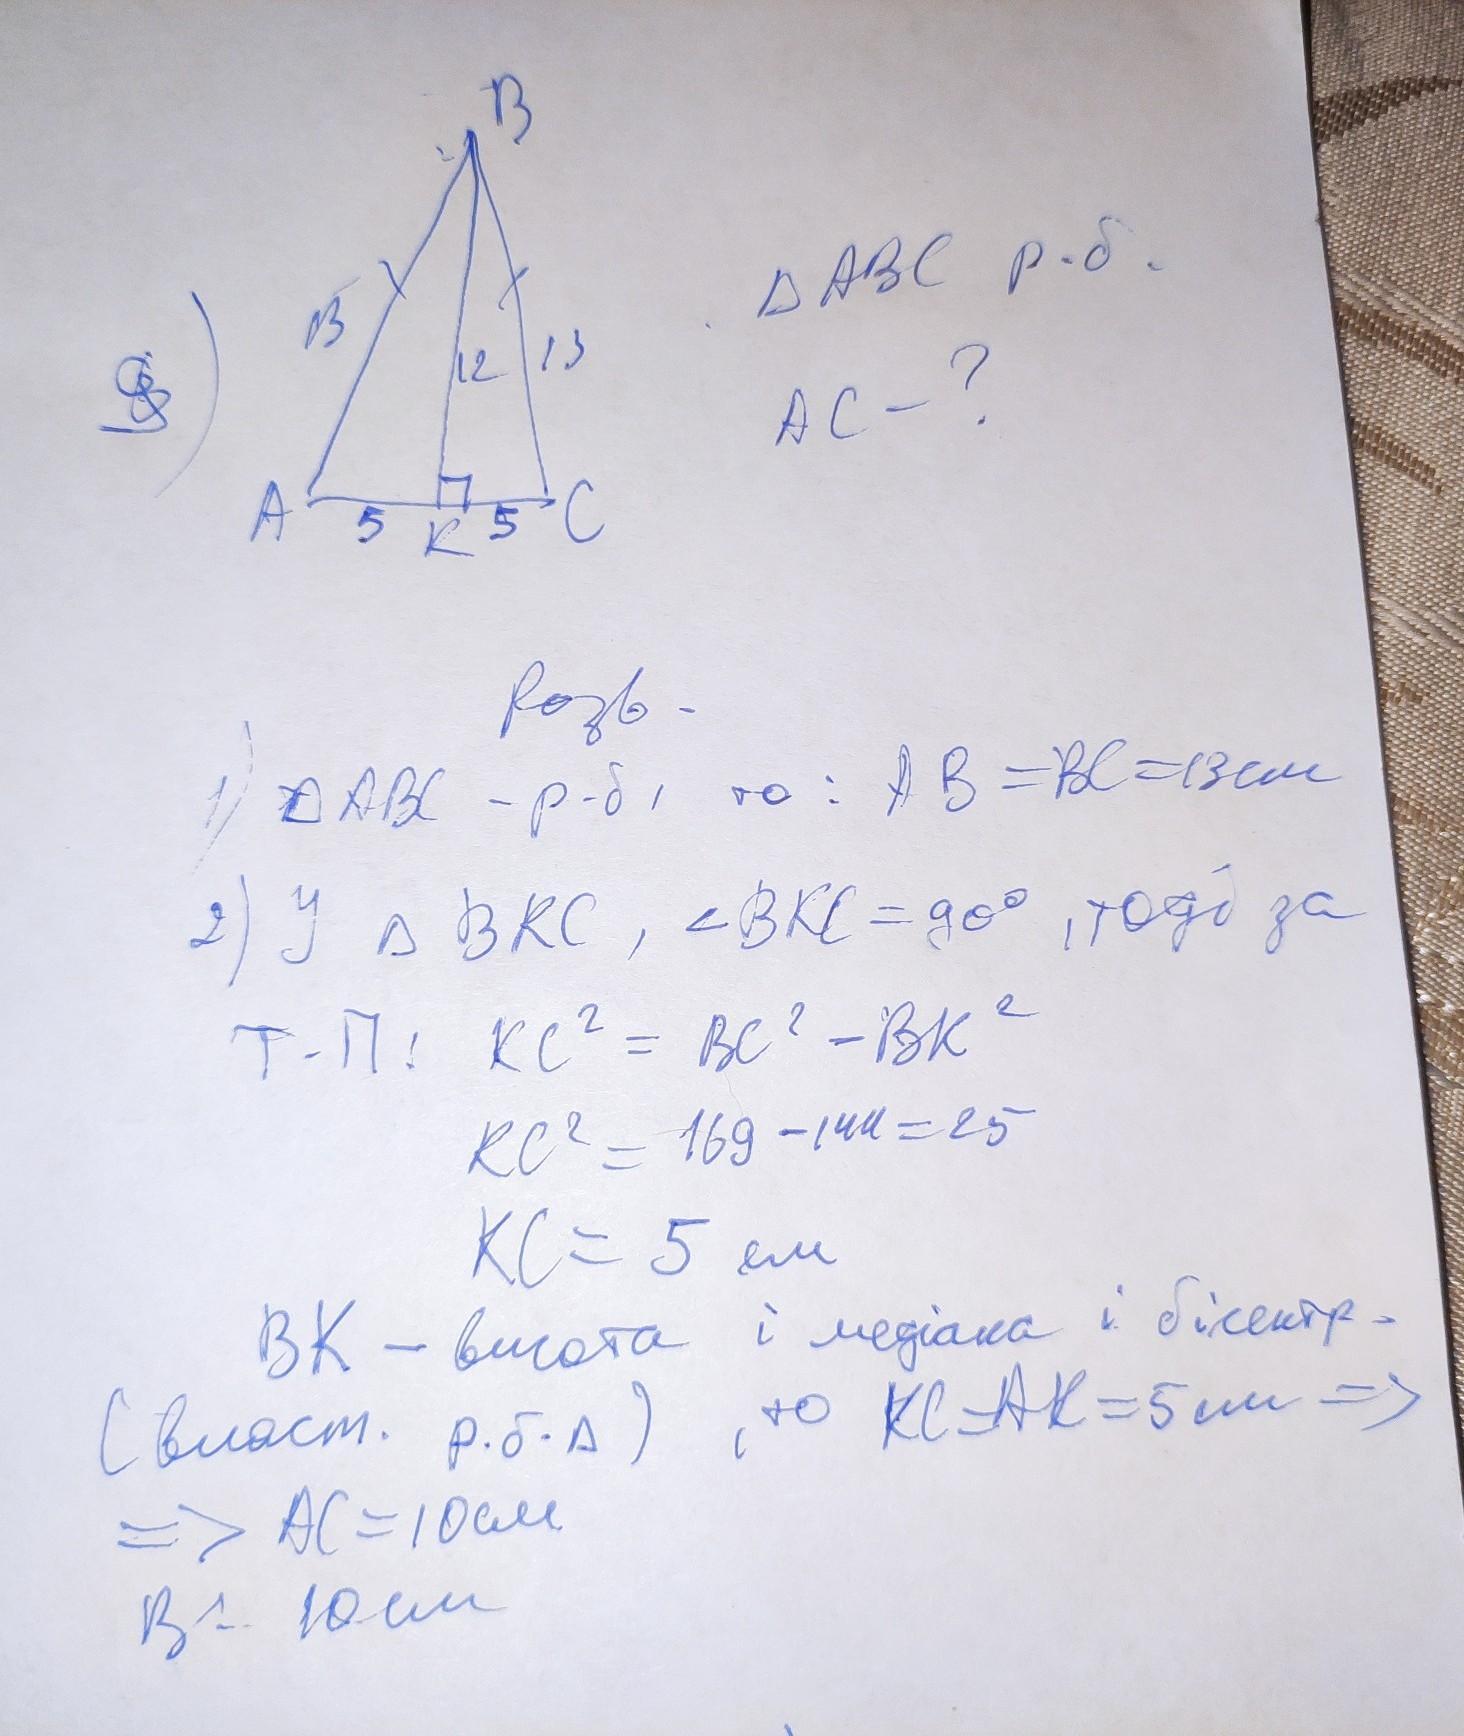 B
13
12
13
A
5
K
5
C
Δ ABC р.б.
AC - ?
Розв.
1) Δ ABC - р-б, то: AB = BC = 13 см
2) У Δ BKC, ∠BKC = 90°, тоді за
Т-П: KC² = BC² - BK²
KC² = 169 - 144 = 25
KC = 5 см
BK - висота і медіана і бісектр.
(власт. р.б.Δ), то KC = AK = 5 см =>
=> AC = 10 см
В: 10 см